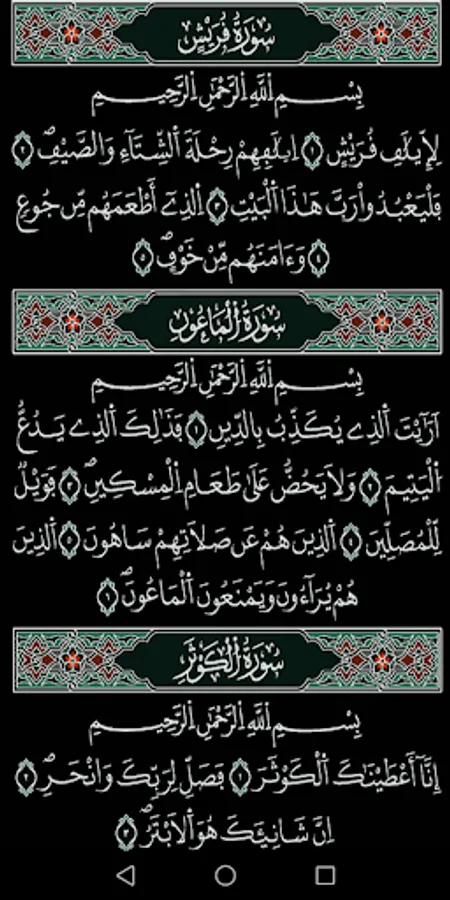 سُورَةُ قُرَيْشٍ
بِسْمِ اِ۬للَّهِ اِ۬لرَّحْمَٰنِ اِ۬لرَّحِيمِ
لِإِيلَٰفِ قُرَيْشٍ ۝١ اِ۪لَٰفِهِمْ رِحْلَةَ اَ۬لشِّتَآءِ وَالصَّيْفِۖ ۝٢
فَلْيَعْبُدُواْ رَبَّ هَٰذَا اَ۬لْبَيْتِ ۝٣ اِ۬لذِےٓ أَطْعَمَهُم مِّن جُوعٍ
۝٤ وَءَامَنَهُم مِّنْ خَوْفٍۖ ۝٥
سُورَةُ اُ۬لْمَاعُونِ
بِسْمِ اِ۬للَّهِ اِ۬لرَّحْمَٰنِ اِ۬لرَّحِيمِ
أَرَٰٓيْتَ اَ۬لذِے يُكَذِّبُ بِالدِّينِ ۝١ فَذَٰلِكَ اَ۬لذِے يَدُعُّ
اُ۬لْيَتِيمَ ۝٢ وَلَا يَحُضُّ عَلَىٰ طَعَامِ اِ۬لْمِسْكِينِۖ ۝٣ فَوَيْلٌ
لِّلْمُصَلِّينَ ۝٤ اَ۬لذِينَ هُمْ عَن صَلَاتِهِمْ سَاهُونَ ۝٥ اَ۬لذِينَ
هُمْ يُرَآءُونَ وَيَمْنَعُونَ اَ۬لْمَاعُونَۖ ۝٦
سُورَةُ اُ۬لْكَوْثَرِ
بِسْمِ اِ۬للَّهِ اِ۬لرَّحْمَٰنِ اِ۬لرَّحِيمِ
إِنَّآ أَعْطَيْنَٰكَ اَ۬لْكَوْثَرَ ۝١ فَصَلِّ لِرَبِّكَ وَانْحَرِۖ ۝٢
اِنَّ شَانِئَكَ هُوَ اَ۬لَابْتَرُۖ ۝٣